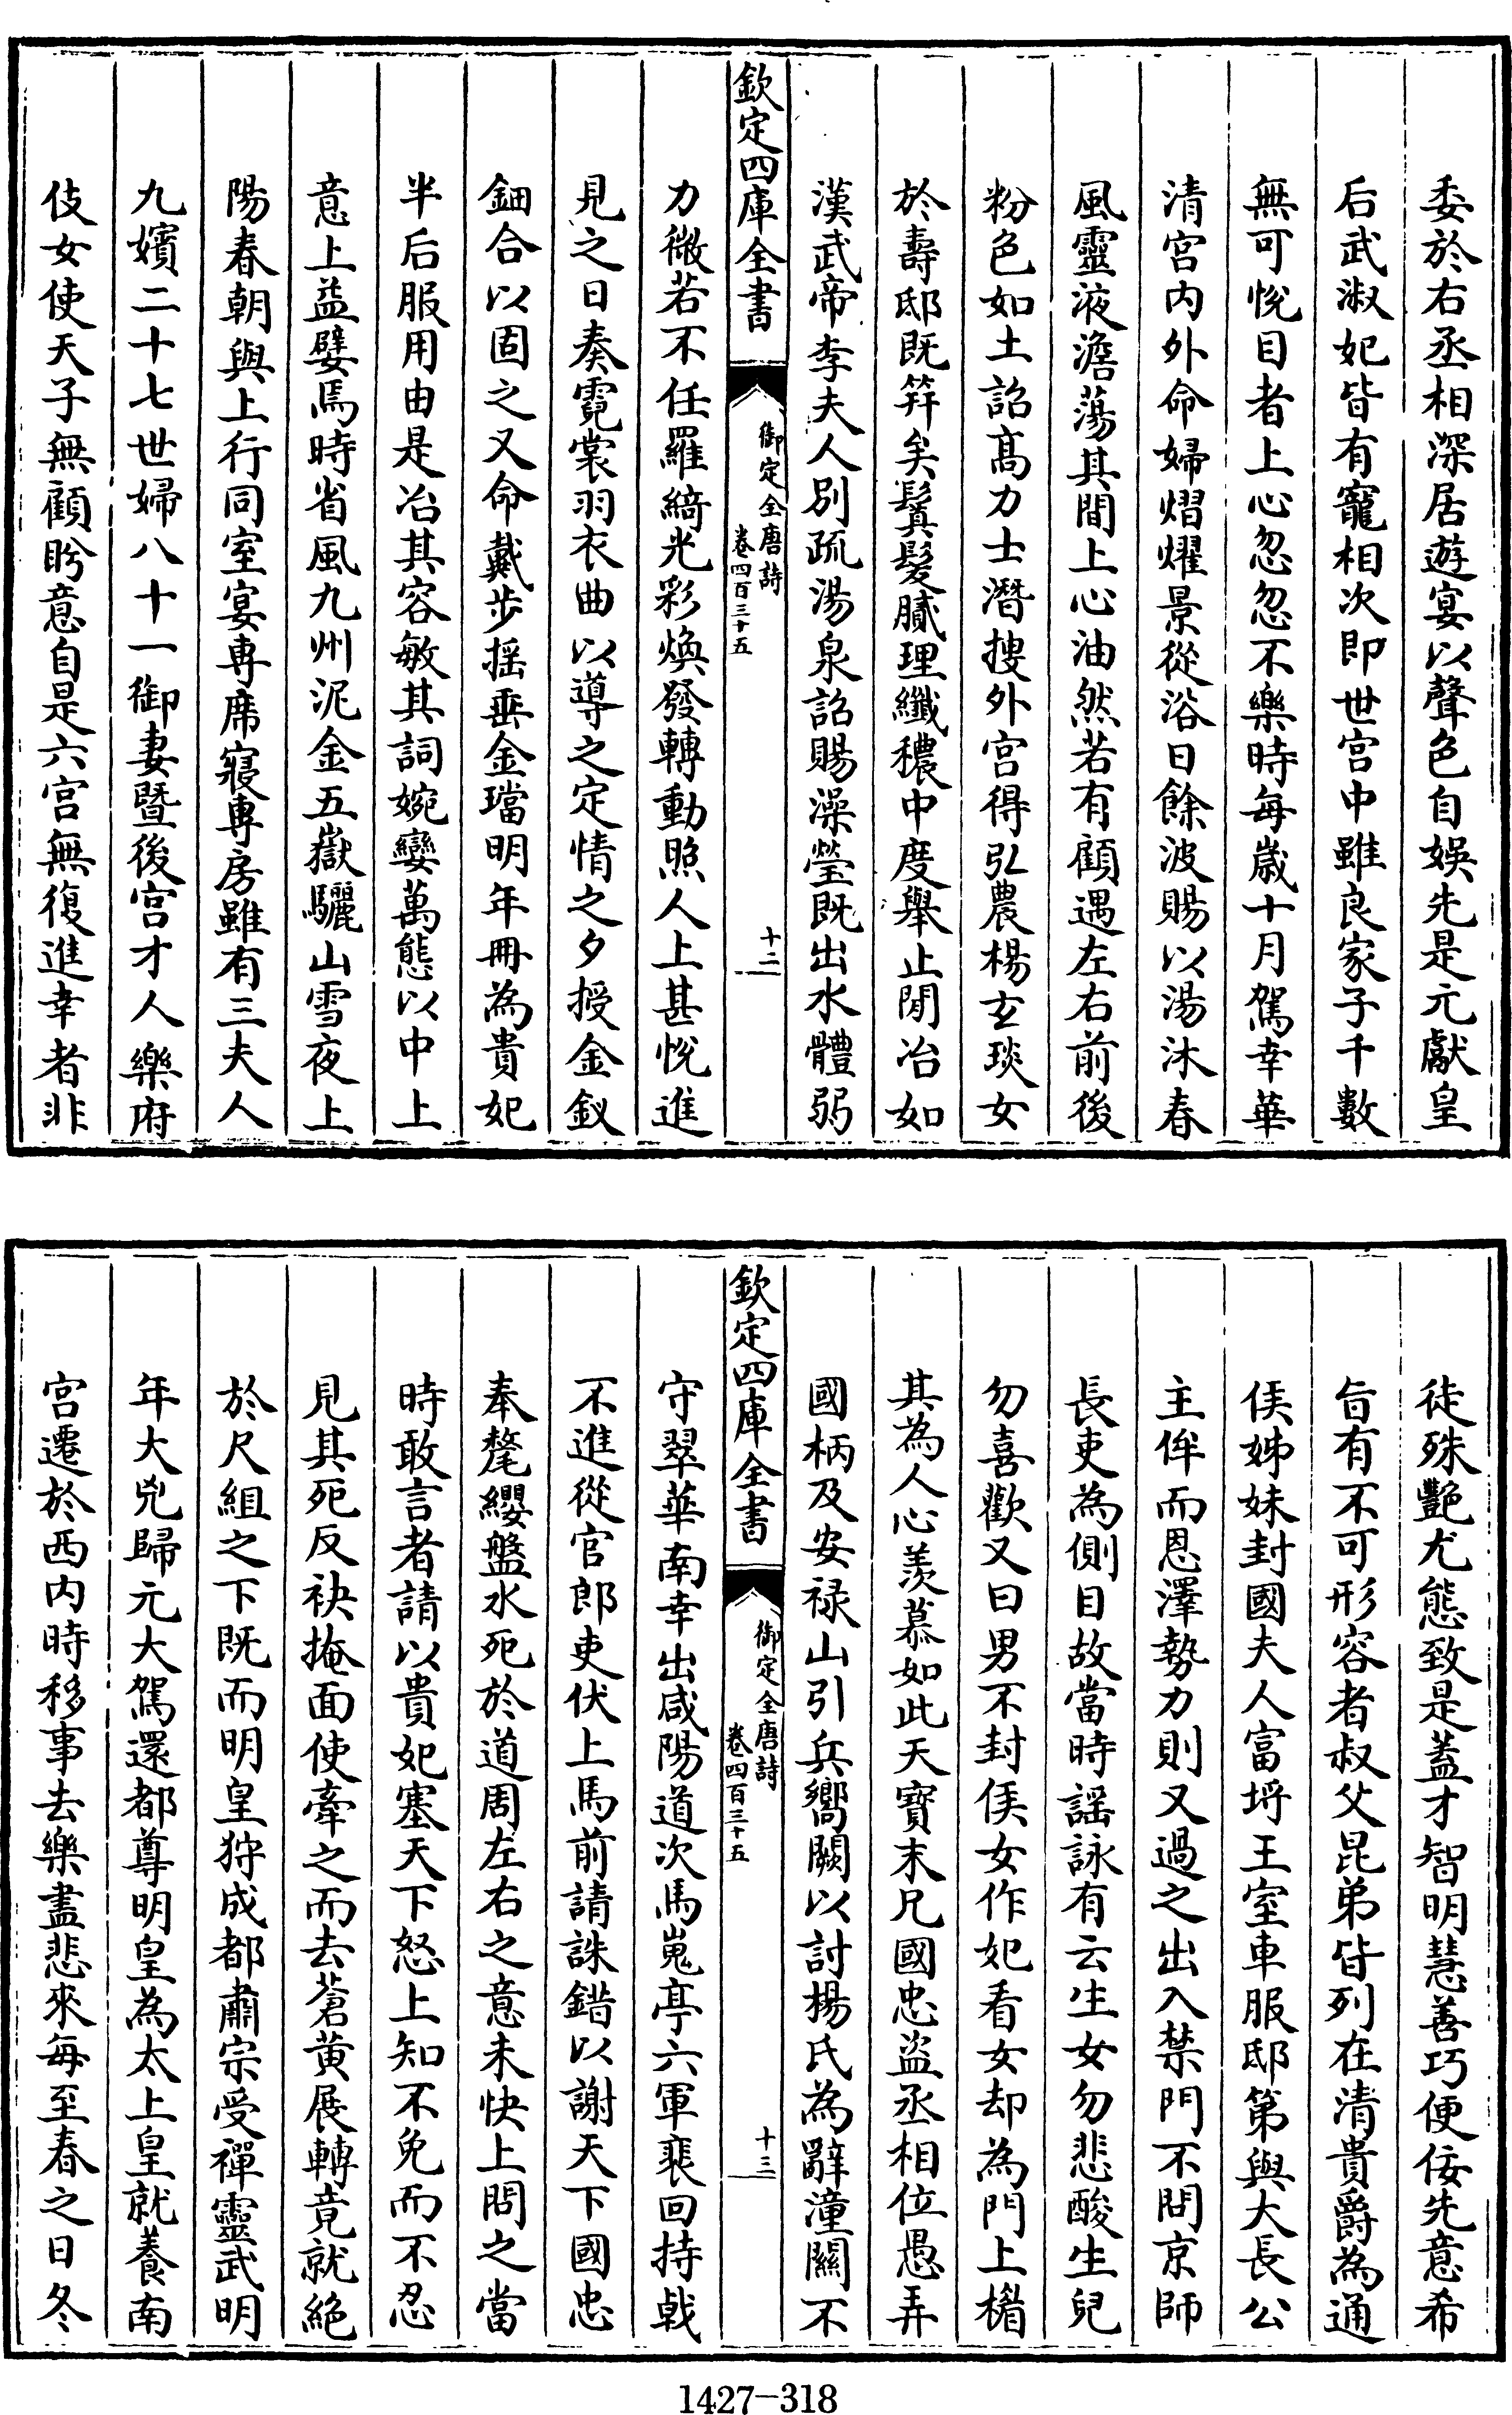 委於右丞相深居遊宴以聲色自娛先是元獻皇
后武淑妃皆有寵相次即世宫中雖良家子千數
無可悅目者上心忽忽不樂時每歳十月駕幸華
清宫内外命婦熠燿景從浴日餘波賜以湯沐春
風靈液澹蕩其間上心油然若有顧遇左右前後
粉色如土詔髙力士潛搜外宫得弘農楊玄琰女
於壽邸既笄矣鬒髪膩理纖穠中度舉止閒冶如
漢武帝李夫人别疏湯泉詔賜澡瑩既出水體弱
欽定四庫全書
御定全唐詩
卷四百三十五
十二
力微若不任羅綺光彩煥發轉動照人上甚悅進
見之日奏霓裳羽衣曲以導之定情之夕授金釵
鈿合以固之又命戴步摇垂金璫明年冊為貴妃
半后服用由是冶其容敏其詞婉孌萬態以中上
意上益嬖焉時省風九州泥金五嶽驪山雪夜上
陽春朝與上行同室宴專席寢專房雖有三夫人
九嬪二十七世婦八十一御妻暨後宫才人樂府
伎女使天子無顧盼意自是六宫無復進幸者非
徒殊艷尤態致是蓋才智明慧善巧便佞先意希
旨有不可形容者叔父昆弟皆列在清貴爵為通
侯姊妹封國夫人富埒王室車服邸第與大長公
主侔而恩澤勢力則又過之出入禁門不問京師
長吏為側目故當時謡詠有云生女勿悲酸生兒
勿喜歡又曰男不封侯女作妃看女却為門上楣
其為人心羡慕如此天寶末兄國忠盗丞相位愚弄
國柄及安禄山引兵嚮闕以討楊氏為辭潼關不
欽定四庫全書
御定全唐詩
卷四百三十五
十三
守翠華南幸出咸陽道次馬嵬亭六軍裴回持戟
不進從官郎吏伏上馬前請誅錯以謝天下國忠
奉氂纓盤水死於道周左右之意未快上問之當
時敢言者請以貴妃塞天下怒上知不免而不忍
見其死反袂掩面使牽之而去蒼黄展轉竟就絶
於尺組之下既而明皇狩成都肅宗受禪靈武明
年大兇歸元大駕還都尊明皇為太上皇就養南
宫遷於西内時移事去樂盡悲來每至春之日冬
1427-318